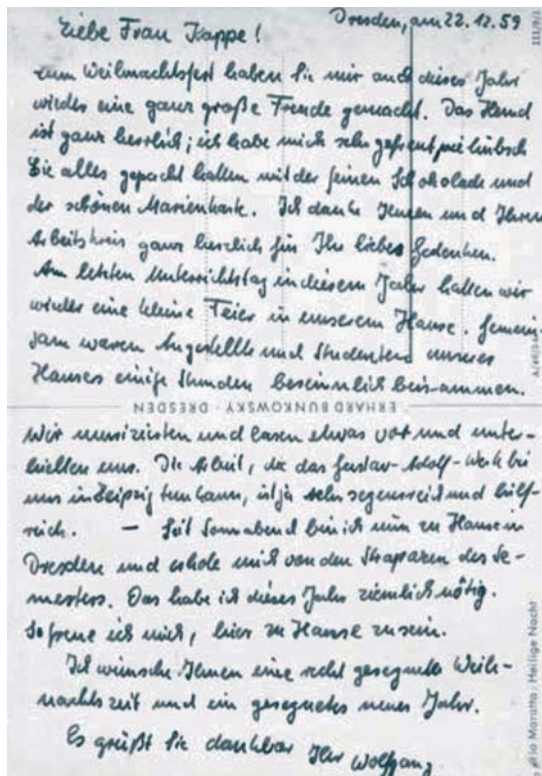 Dresden, am 22.12.59
Liebe Frau Kappe!
zum Weihnachtsfest haben Sie mir auch dieses Jahr
wieder eine ganz große Freude gemacht. Das Hemd
ist ganz herrlich; ich habe mich sehr gefreut, wie hübsch
Sie alles gepackt hatten mit der feinen Schokolade und
der schönen Marienkarte. Ich danke Ihnen und Ihrem
Arbeitskreis ganz herzlich für Ihr liebes Gedenken.
Am letzten Unterrichtstag in diesem Jahr hatten wir
wieder eine kleine Feier in unserem Hause. Gemein-
sam waren Angestellte und Studenten unseres
Hauses einige Stunden besinnlich beisammen.
ERHARD BUNKOWSKY · DRESDEN
Wir musizierten und lasen etwas vor und unter-
hielten uns. Die Arbeit, die das Gustav-Adolf-Werk bei
uns in Leipzig tun kann, ist ja sehr segensreich und hilf-
reich. — Seit Sonnabend bin ich nun zu Hause in
Dresden und erhole mich von den Strapazen des Se-
mesters. Das habe ich dieses Jahr ziemlich nötig.
So freue ich mich, hier zu Hause zu sein.
Ich wünsche Ihnen eine recht gesegnete Weih-
nachtszeit und ein gesegnetes neues Jahr.
Es grüßt Sie dankbar Ihr Wolfgang
Maratta: Heilige Nacht